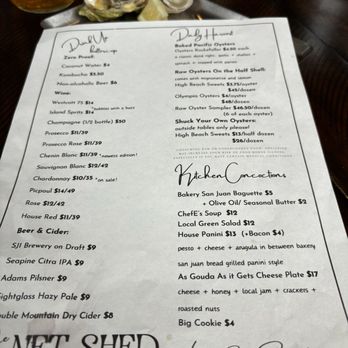 Drink Up
Buttercup
Zero Proof:
Coconut Water $4
Kombucha $5.50
Non-alcoholic Beer $6
Wine:
Westcott 75 $14
*bubbles with a buzz
Island Spritz $14
Champagne (1/2 bottle) $50
Prosecco $11/39
Prosecco Rose $11/39
Chenin Blanc $11/39 *newest edition!
Sauvignon Blanc $12/42
Chardonnay $10/35 *on sale!
Picpoul $14/49
Rose $12/42
House Red $11/39
Beer & Cider:
SJI Brewery on Draft $9
Seapine Citra IPA $9
Adams Pilsner $9
Sightglass Hazy Pale $9
Double Mountain Dry Cider $8
NET SHED
Daily Harvest
Baked Pacific Oysters
Oysters Rockafeller $4.50 each
spinach + topped with panko
Raw Oysters On the Half Shell:
comes with mignonette and lemon
High Beach Sweets $3.75/oyster
$45/dozen
Olympias Oysters $4/oyster
$48/dozen
Raw Oyster Sampler $46.50/dozen
(6 of each oyster)
Shuck Your Own Oysters:
outside tables only please!
High Beach Sweets $13/half dozen
$26/dozen
Kitchen Concoctions
Bakery San Juan Baguette $5
+ Olive Oil/ Seasonal Butter $2
ChefE's Soup $12
Local Green Salad $12
House Panini $13 (+Bacon $4)
pesto + cheese + arugula in between bakery
san juan bread grilled panini style
As Gouda As it Gets Cheese Plate $17
cheese + honey + local jam + crackers +
roasted nuts
Big Cookie $4